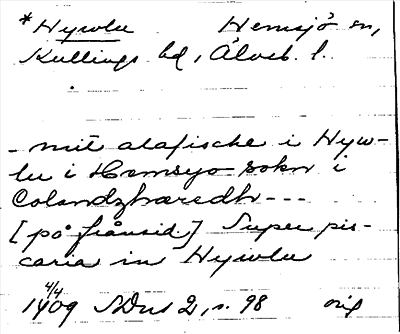 *Hywlu Hemsjö sn,
Kullings hd, Älvsb. l.
- mit alafische i Hyw-
lu i Hemsyo sokn i
Colandzhæredh---
[på frånsid.] Super pis-
caria in Hywlu
4/4
1409 SDns 2, s. 98 orig